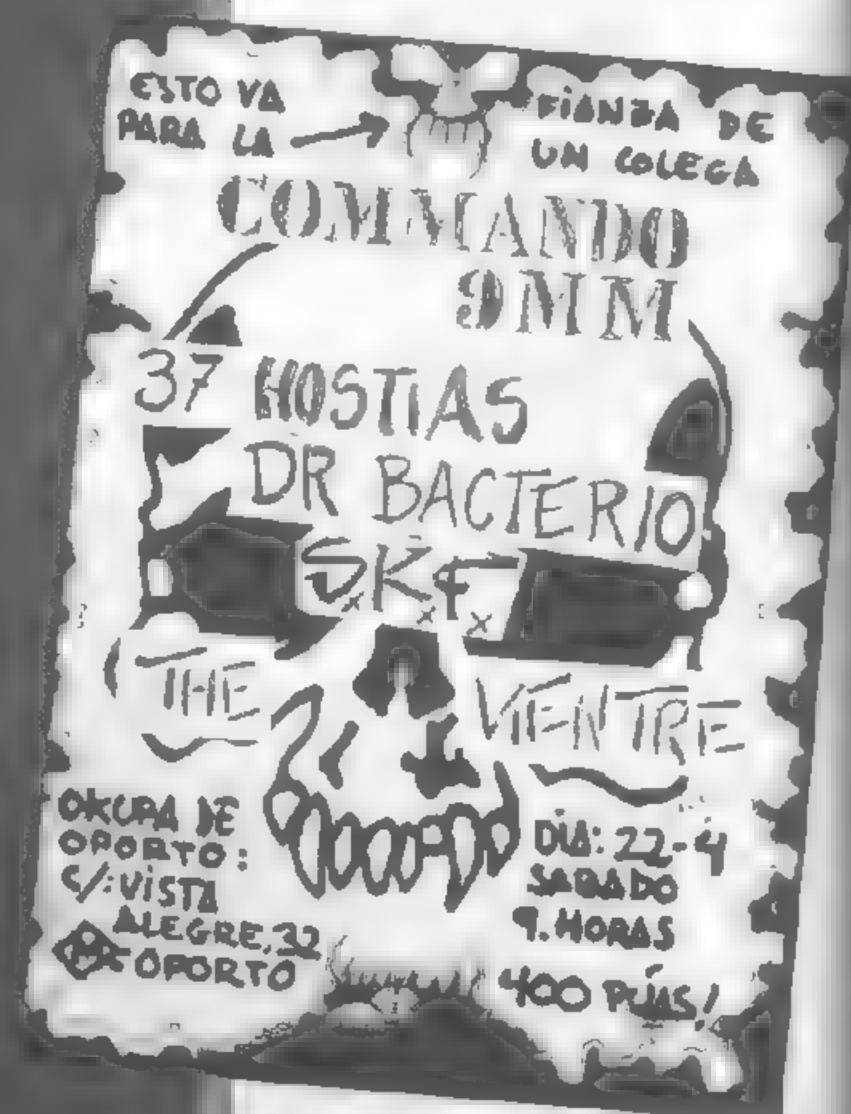 ESTO VA
PARA LA
FIANZA DE
UN COLEGA
COMMANDO
9MM
37 HOSTIAS
DR BACTERIO
S.K.F.
THE VIENTRE
OKUPA DE
OPORTO:
C/: VISTA
ALEGRE, 32
M OPORTO
DIA: 22-4
SABADO
9. HORAS
400 PÚAS!